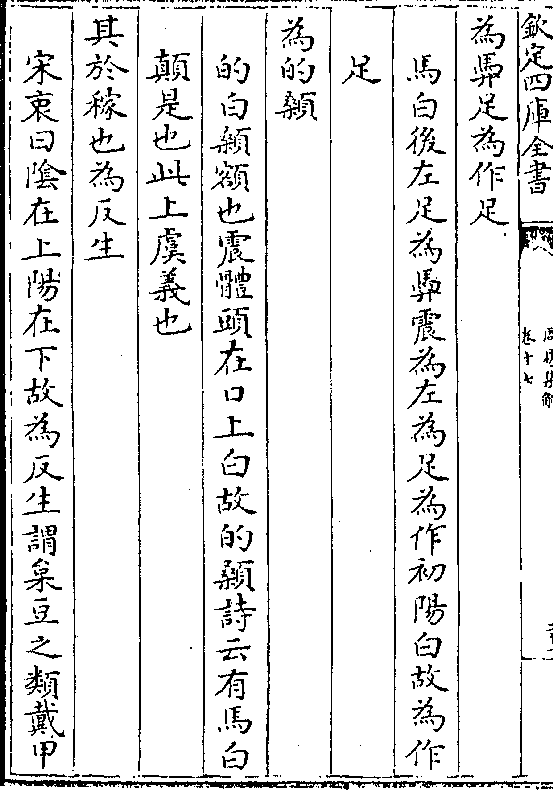 欽定四庫全書
卷十七
為馵足為作足
馬白後左足為馵震為左為足為作初陽白故為作
足
為的顙
的白顙額也震體頭在口上白故的顙詩云有馬白
顛是也此上虞義也
其於稼也為反生
宋衷曰陰在上陽在下故為反生謂枲豆之類戴甲